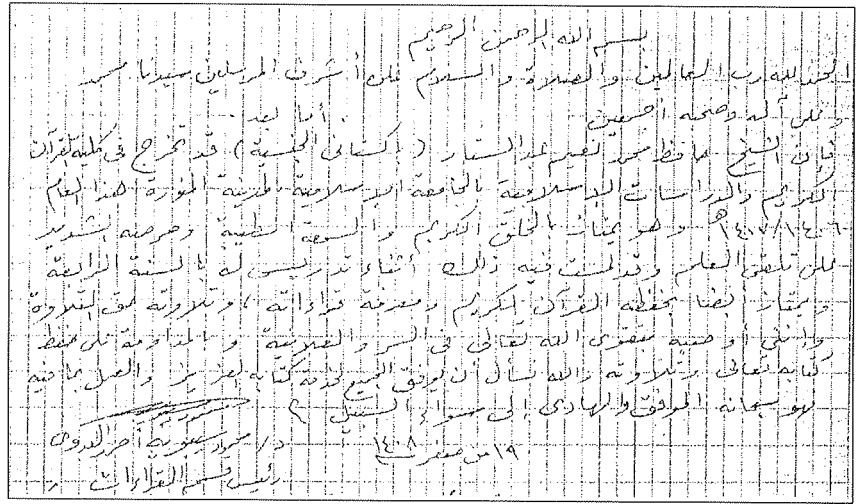 بسم الله الرحمن الرحيم
الحمد لله رب العالمين والصلاة والسلام على أشرف المرسلين سيدنا محمد
وعلى آله وصحبه أجمعين . أما بعد .
فإن الشيخ حافظ محمد نعيم عبد الستار ( باكستانى الجنسية ) قد تخرج فى كلية القرآن
الكريم والدراسات الإسلامية بالجامعة الإسلامية بالمدينة المنورة هذا العام
١٤٠٦/١٤٠٧هـ وهو يمتاز بالخلق الكريم والسمعة الطيبة وحرصه الشديد
على تلقى العلم وقد لمست فيه ذلك أثناء تدريسى له بالسنة الرابعة
ويمتاز أيضا بحفظه القرآن الكريم ومعرفة قراءاته ، وتلاوته حق التلاوة
وإننى أوصيه بتقوى الله تعالى فى السر والعلانية وبالمداومة على حفظ
كتابه تعالى وتلاوته والله نسأل أن يوفق الجميع لخدمة كتابه العزيز والعمل بما فيه
فهو سبحانه الموفق والهادى إلى سواء السبيل
١٩ من صفر ١٤٠٨
د/ محمود سيبويه أحمد البدوى
رئيس قسم القراءات